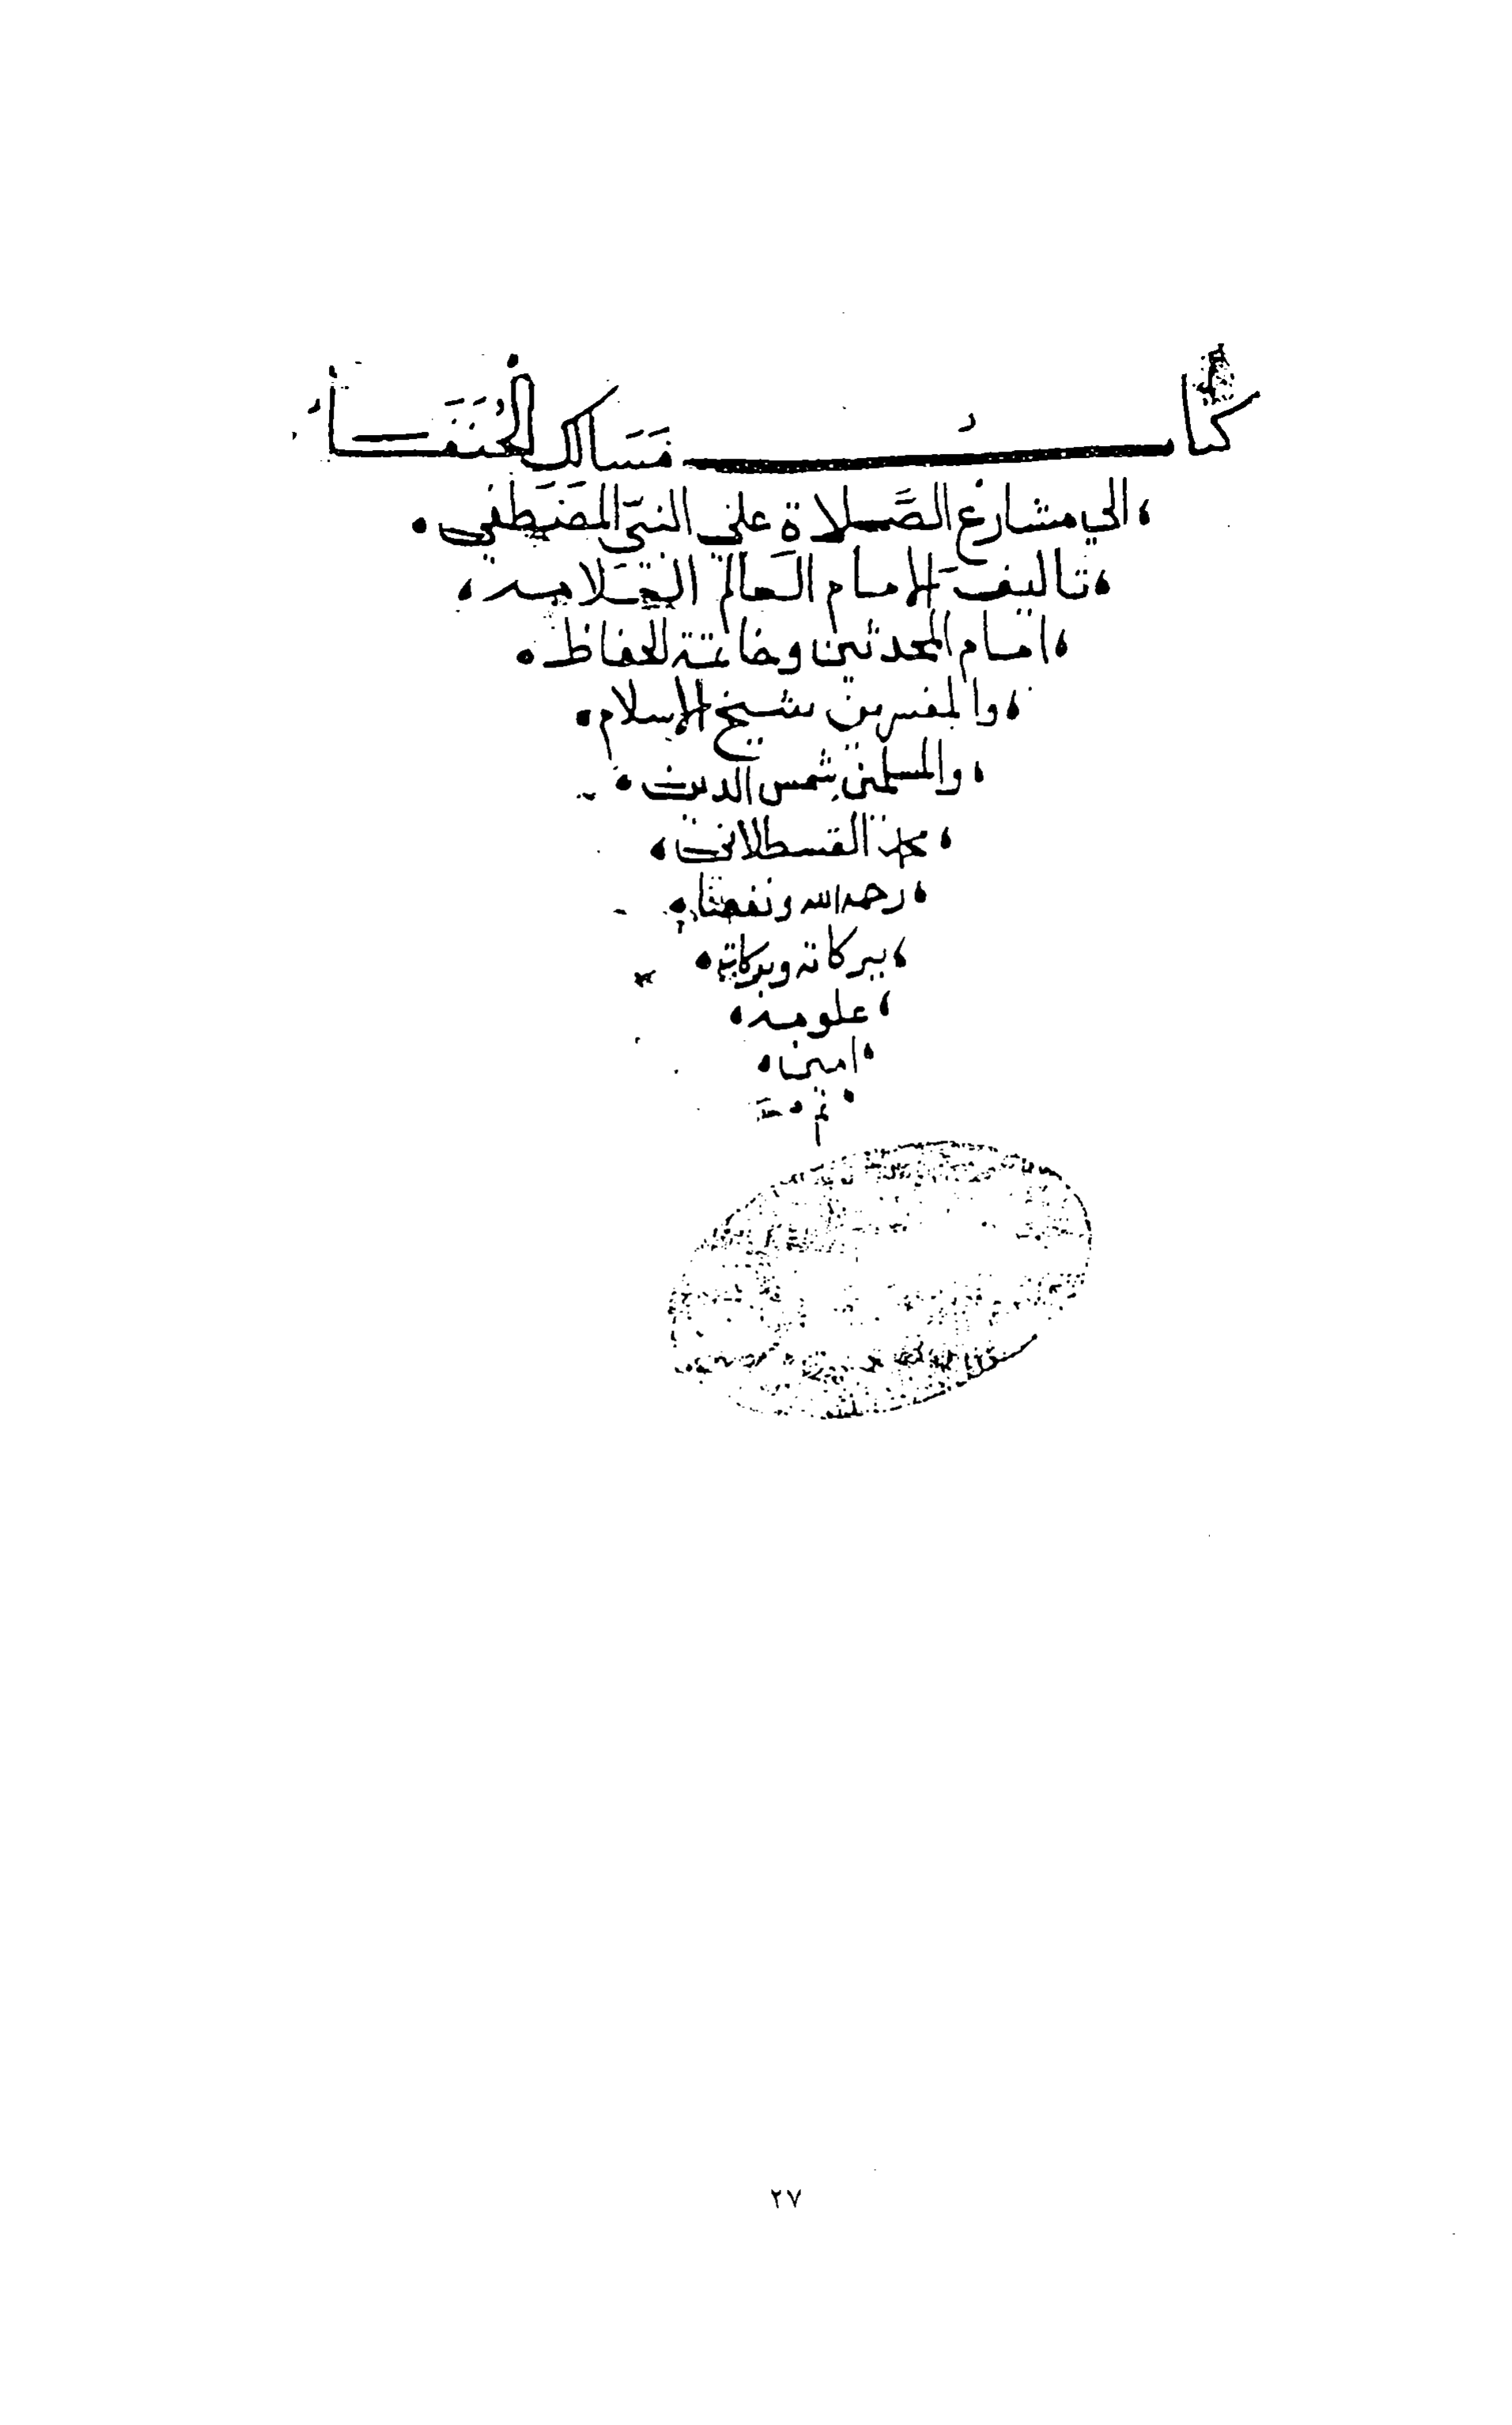 كتابُ مَسَالك الحُنَفَاءُ
الي مشارع الصَّلاة علي النبيّ المصَطفي
تاليف الامام العالم العلامه
امام المحدثين وخاتمة الحفاظ
والمفسرين شيخ الاسلام
والمسلمين شمس الدين
محمد القسطلاني
رحمه الله ونفعنا
ببركاته وبركات
علومه
امين
تم
٢٧